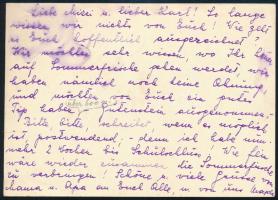 Liebe Mizzi u. lieber Karl! So lange
wissen wir nichts von Euch! Wie geht
es Euch hoffentlich ausgezeichnet?
Wir möchten sehr wissen, wo Ihr heuer
auf Sommerfrische gehen werdet, wir
haben nämlich noch keine Ahnung
und möchten von Euch ein guten
Tip haben, ausgenommen.
Bitte bitte schreibet wenn es möglich
ist, postwendend, denn ich hab nun
mehr 2 Wochen bis Schulschluss. Wie fein
wäre wieder zusammen die Sommerfrische
zu verbringen! Schöne u. viele Grüsse von
Mama u. Papa an Euch Alle, u. von uns